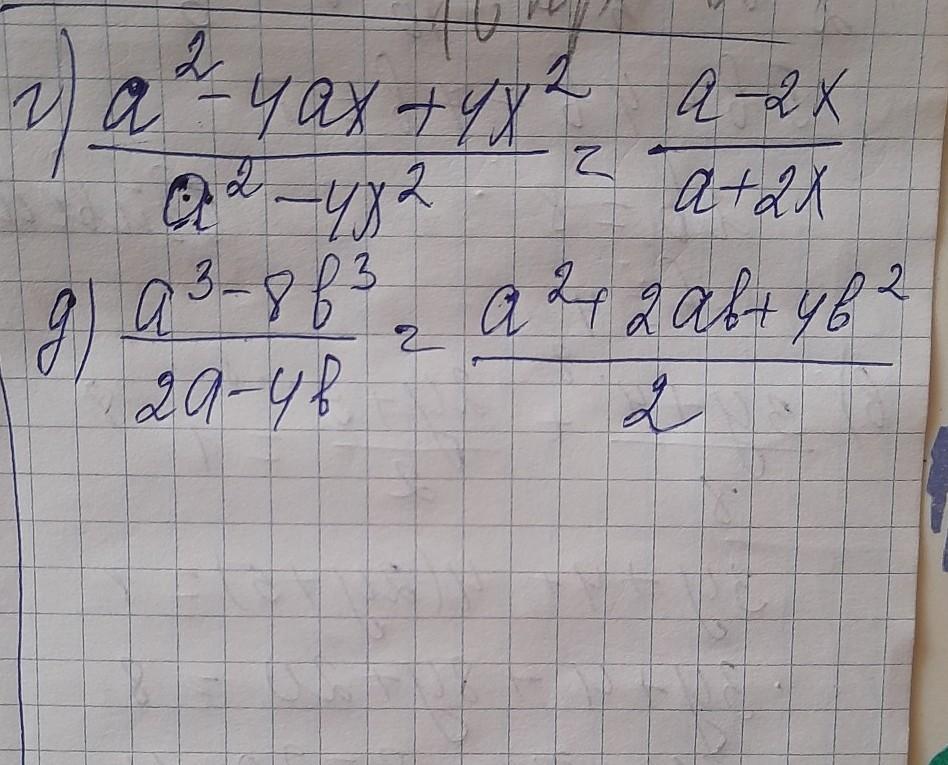 г) (a² - 4ax + 4x²) / (a² - 4x²) = (a - 2x) / (a + 2x)
д) (a³ - 8b³) / (2a - 4b) = (a² + 2ab + 4b²) / 2